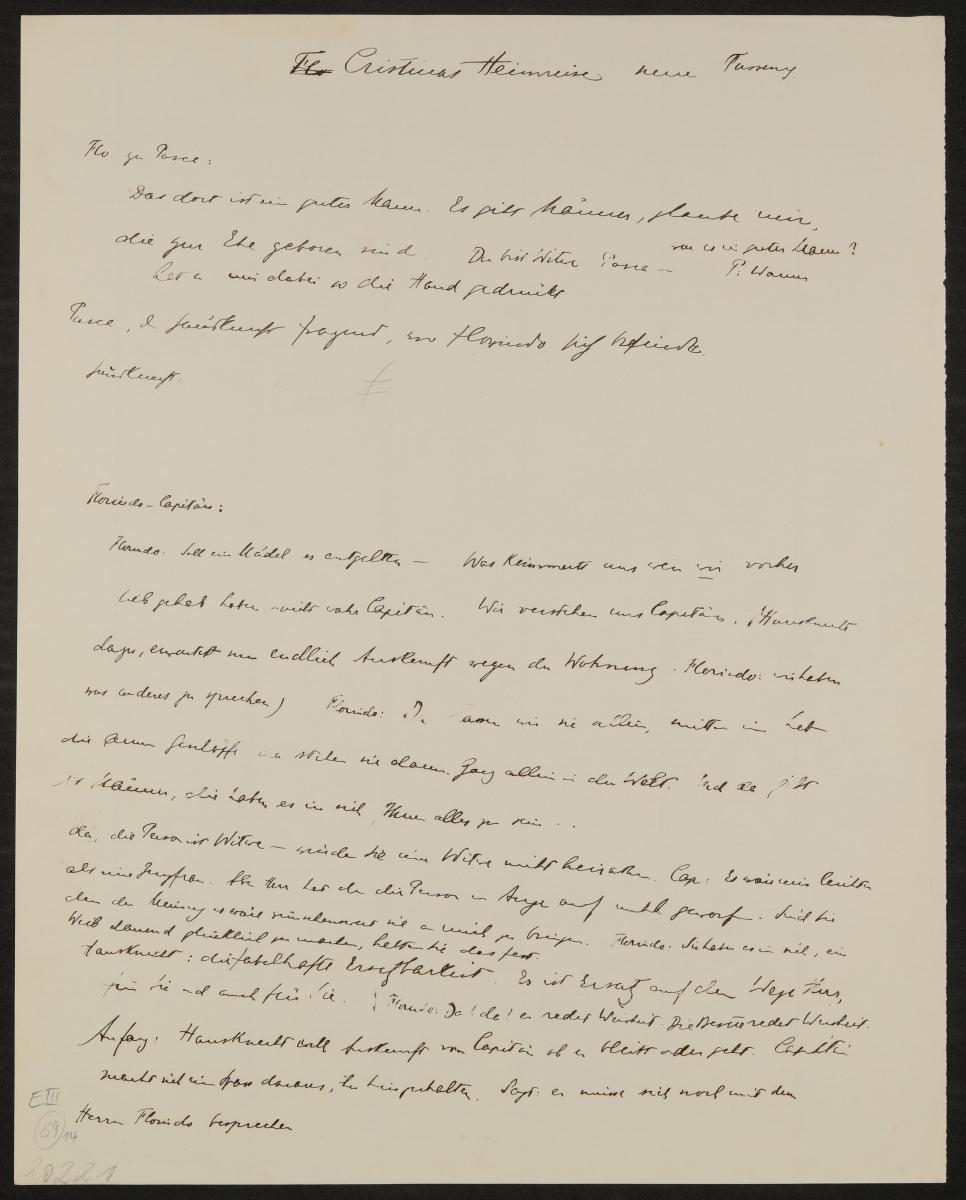 Flo Cristinas Heimreise neue Fassung
Flo zu Pasca:
Das dort ist ein guter Mann. Es gibt Männer, glaube mir,
die zur Ehe geboren sind. Du bist Witwe Pasca –
wo is ein guter Mann?
P: Wann
hat er mir dabei so die Hand gedrückt
Pasca, d Hausknecht fragend, wo Florindo sich befinde.
Hausknecht.
Florindo – Capitän:
Florindo: Soll ein Mädel es entgelten – Was kümmerts uns wen wir vorher
lieb gehabt haben – nicht wahr Capitän. Wir verstehen uns Capitän. (Hausknecht
dazu, erwartet nun endlich Auskunft wegen der Wohnung. Florindo: wir haben
was anderes zu sprechen) Florindo: Da lassen wir sie allein, mitten im Leb
die armen Geschöpfe da stehen sie dann. Ganz allein in der Welt. Und da gibt
es Männer, die haben es in sich, Ihnen alles zu sein ..
da, die Person ist Witwe – würden Sie eine Witwe nicht heirathen. Cap: Es wäre mir lieber
als eine Jungfrau. Der Herr hat da die Person ein Auge auf mich geworfen. Sind Sie
denn der Meinung es wäre sie an mich zu bringen. Florindo: Sie haben es in sich, ein
Weib dauernd glücklich zu machen, halten Sie das fest.
Hausknecht: die fabelhafte Ersetzbarkeit. Es ist Ersatz auf dem Wege Herr,
für Sie und auch für Sie. (Florindo: Da! da! er redet Weisheit. Die Bestie redet Weisheit.
Anfang: Hausknecht will Auskunft von Capitän ob er bleibt oder geht. Capitän
macht sich ein Spass daraus, ihn hinzuhalten. Sagt: er müsse sich noch mit dem
Herrn Florindo besprechen
E III
59 14
20221